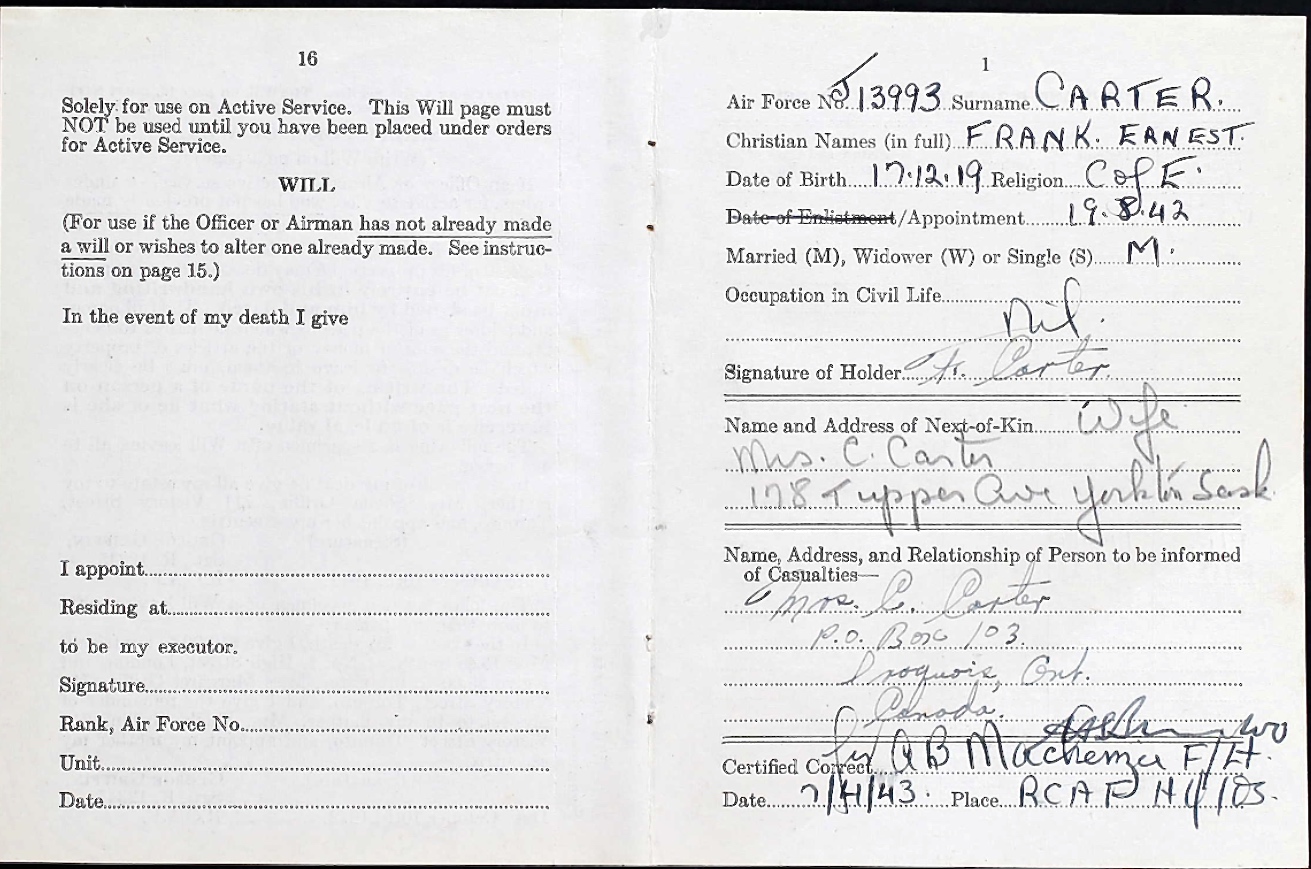 16
Solely for use on Active Service. This Will page must
NOT be used until you have been placed under orders
for Active Service.
WILL
(For use if the Officer or Airman has not already made
a will or wishes to alter one already made. See instruc-
tions on page 15.)
In the event of my death I give
I appoint
Residing at
to be my executor.
Signature
Rank, Air Force No.
Unit
Date
1
Air Force No. J13993 Surname CARTER.
Christian Names (in full) FRANK. EARNEST.
Date of Birth 17.12.19 Religion C of E.
Date of Enlistment/Appointment 19.8.42
Married (M), Widower (W) or Single (S) M.
Occupation in Civil Life
Nil.
Signature of Holder F. Carter.
Name and Address of Next-of-Kin Wife
Mrs. C. Carter
178 Tupper Ave Yorkton Sask.
Name, Address, and Relationship of Person to be informed
of Casualties—
Mrs. C. Carter
P.O. Box 103.
Iroquois, Ont.
Canada.
WO
Certified Correct AB Mackenzie F/Lt.
Date 7/4/43. Place RCAF